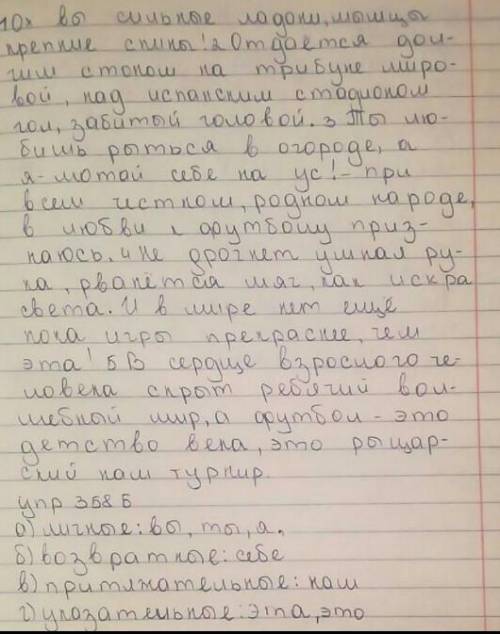 1Ох вы сильные ладони, мышцы
крепкие спины! 2 Отдается дол-
гим стоном на трибуне миро-
вой, над испанским стадионом
гол, забитый головой. 3 Ты лю-
бишь рыться в огороде, а
я - мотай себе на ус! - при
всем честном, родном народе,
в любви к футболу приз-
наюсь. 4 Не дрогнет умная ру-
ка, рванётся мяч, как искра
света. И в мире нет ещё
пока игры прекраснее, чем
эта! 5 В сердце взрослого че-
ловека скрыт ребячий вол-
шебный мир, а футбол - это
детство века, это рыцар-
ский наш турнир.
упр 358 Б
а) личные: вы, ты, я.
б) возвратные: себе
в) притяжательные: наш
г) указательные: эта, это